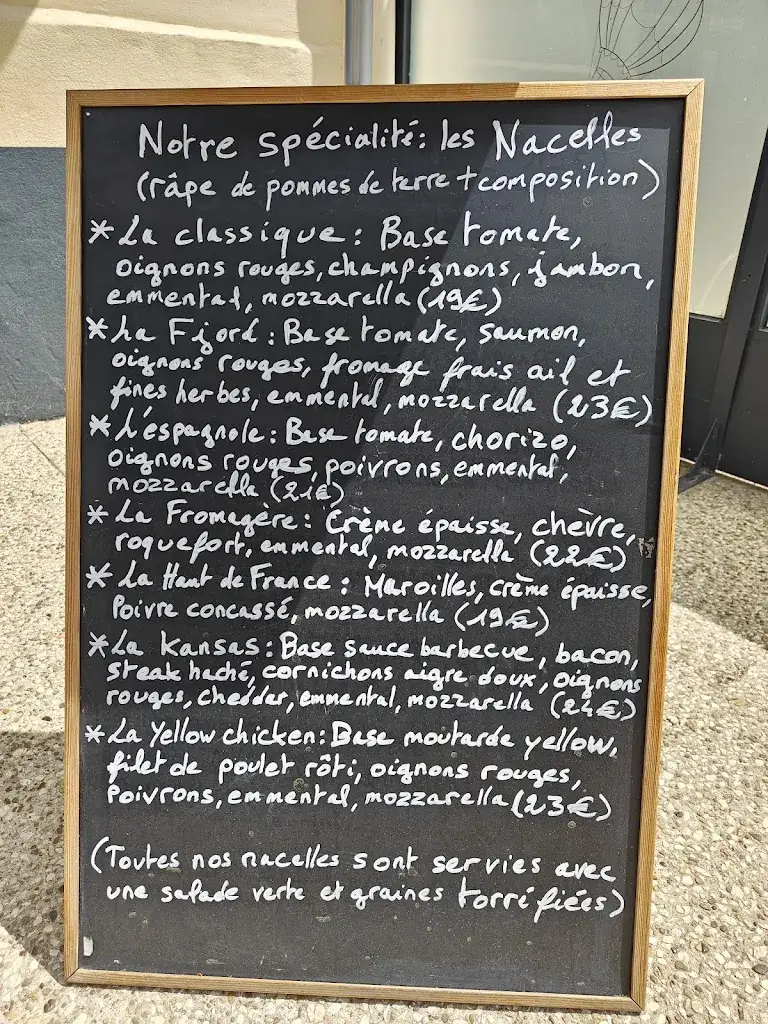 Notre spécialité: les Nacelles
(râpe de pommes de terre + composition)
* La classique: Base tomate,
oignons rouges, champignons, jambon,
emmental, mozzarella (19€)
* La Fjord: Base tomate, saumon,
oignons rouges, fromage frais ail et
fines herbes, emmental, mozzarella (23€)
* L'espagnole: Base tomate, chorizo,
oignons rouges, poivrons, emmental,
mozzarella (21€)
* La Fromagère: Crème épaisse, chèvre,
roquefort, emmental, mozzarella (22€)
* La Haut de France: Maroilles, crème épaisse,
Poivre concassé, mozzarella (19€)
* La Kansas: Base sauce barbecue, bacon,
steak haché, cornichons aigre doux, oignons
rouges, cheddar, emmental, mozzarella (24€)
* La Yellow chicken: Base moutarde yellow,
filet de poulet rôti, oignons rouges,
Poivrons, emmental, mozzarella (23€)
(Toutes nos nacelles sont servies avec
une salade verte et graines torréfiées)